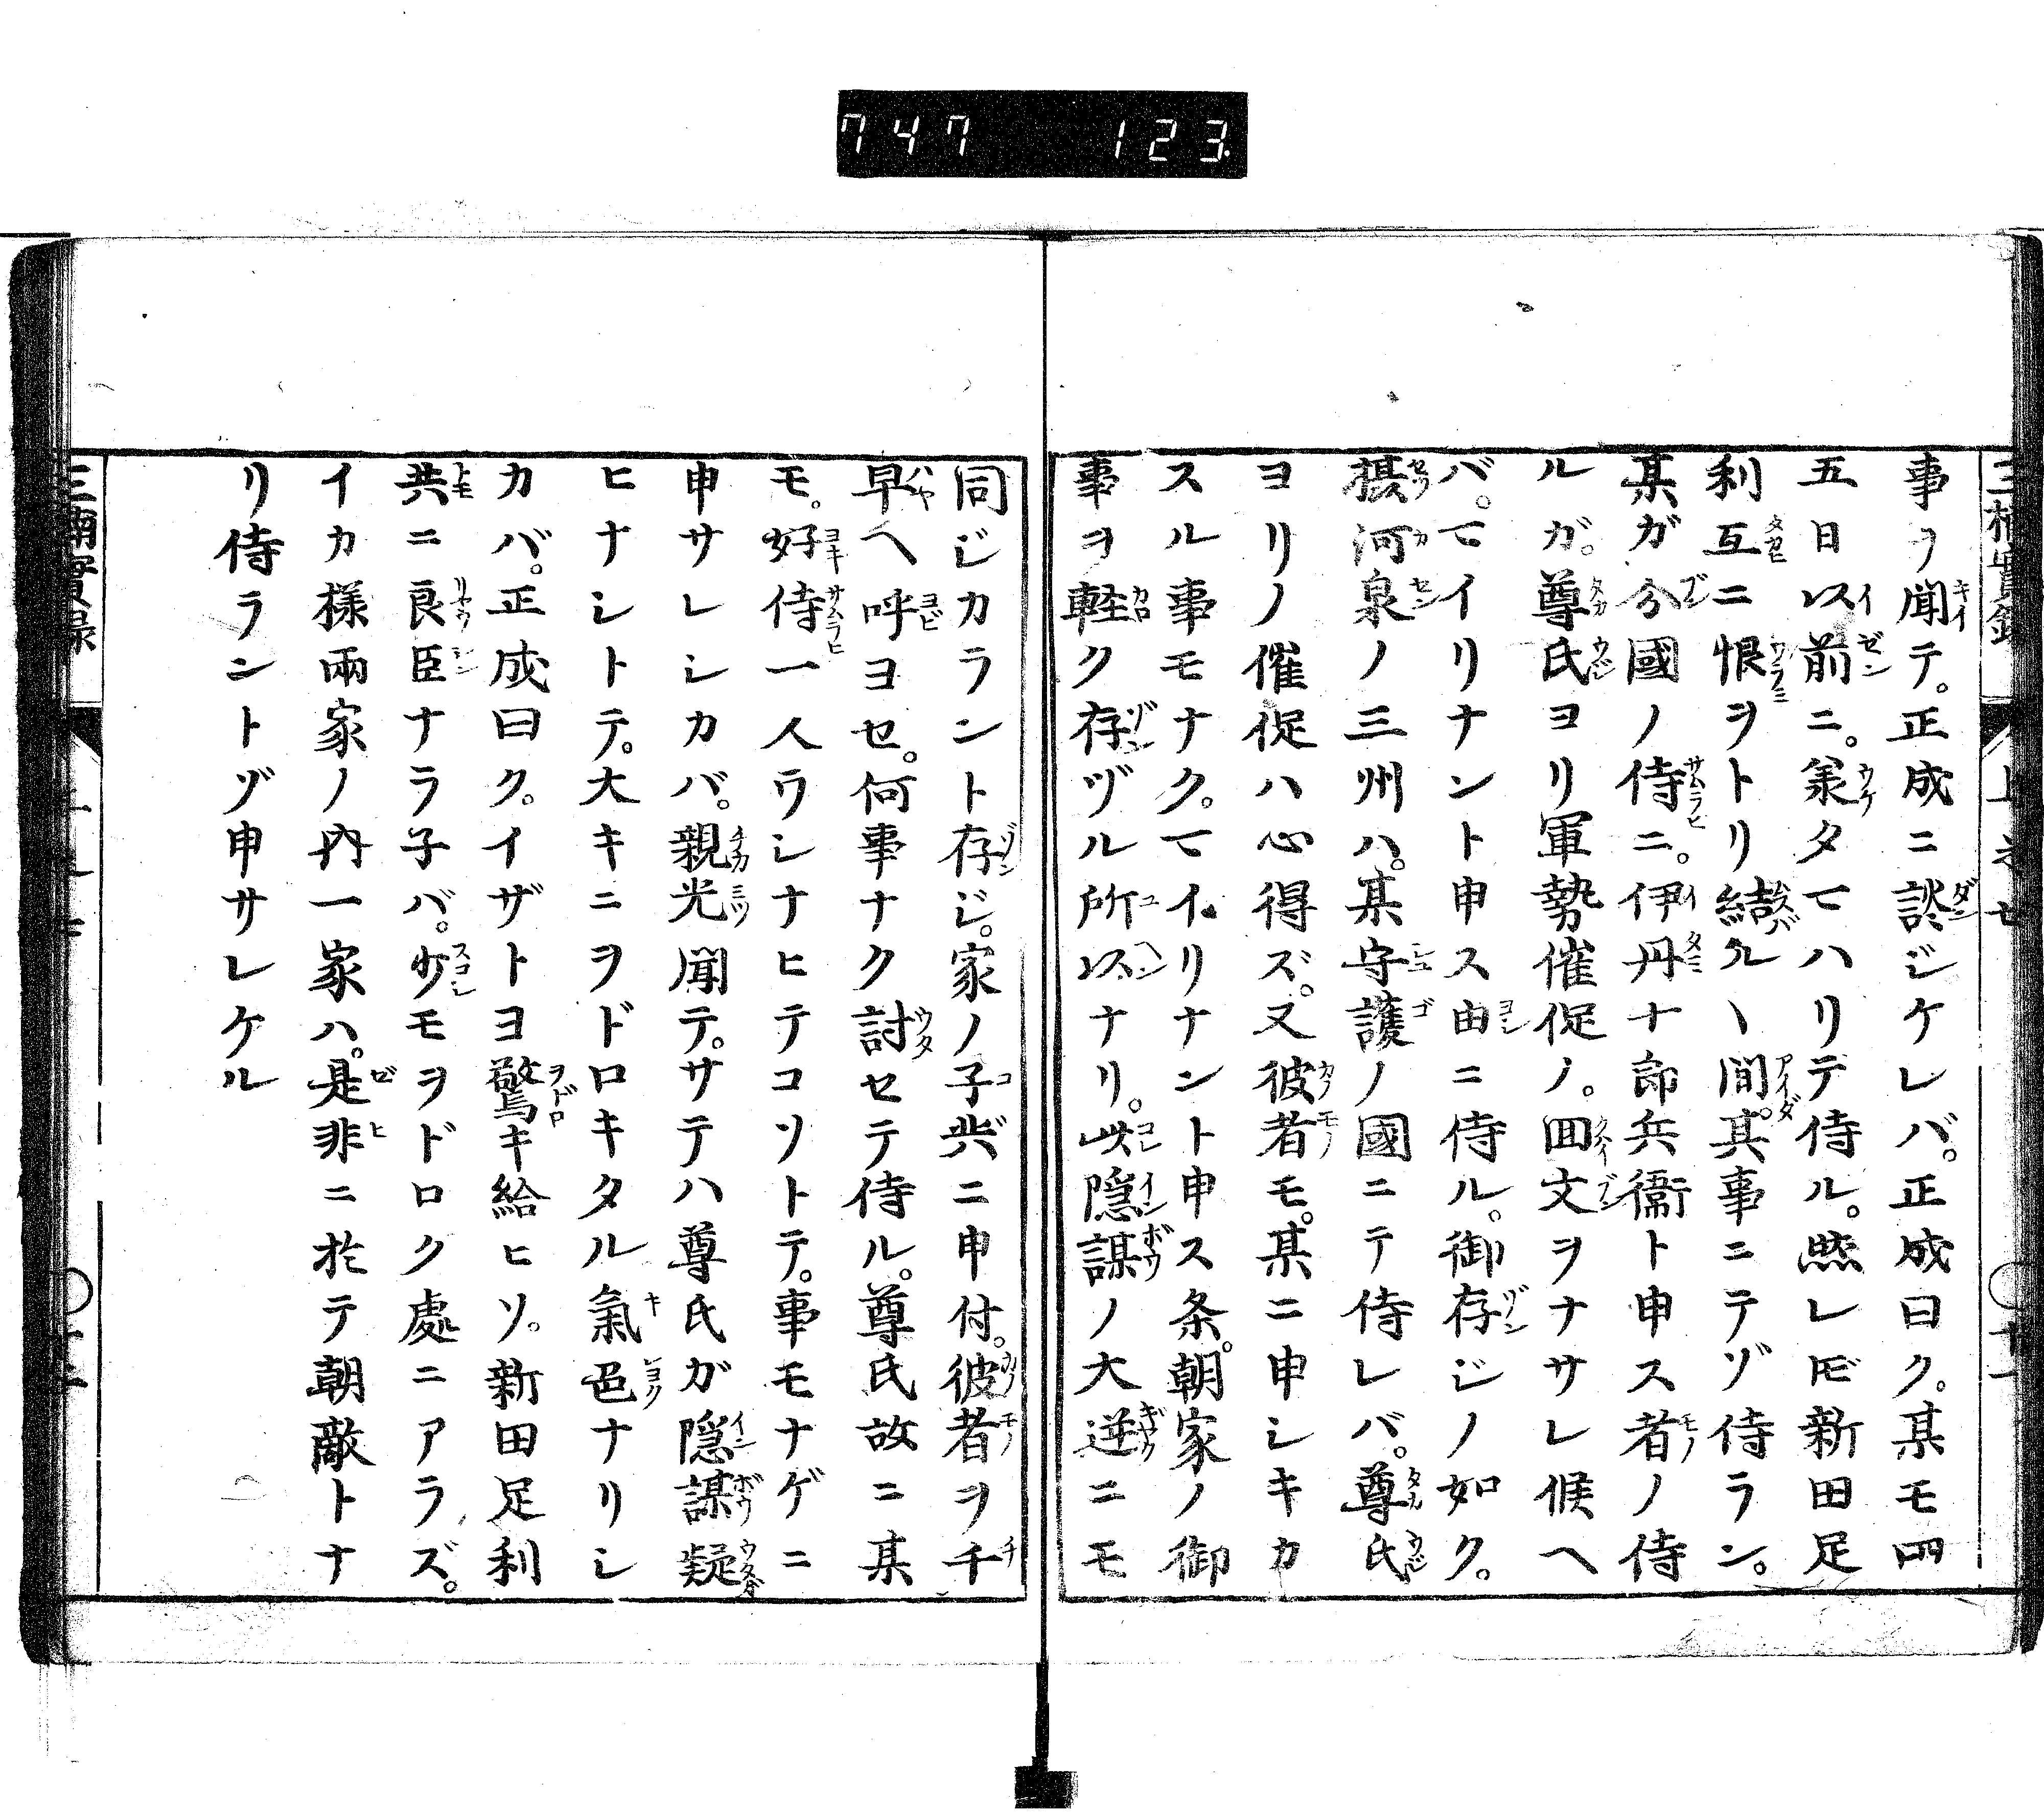 747 123
事ヲ聞テ。正成ニ談ジケレバ。正成曰ク。某モ四
五日以前ニ。羕タマハリテ侍ル。然レ𪜈新田足
利互ニ恨ヲトリ結ル丶間。其事ニテゾ侍ラン。
某ガ分國ノ侍ニ。伊丹十郎兵衞ト申ス者ノ侍
ルガ。尊氏ヨリ軍勢催促ノ。囬文ヲナサレ候ヘ
バ。マイリナント申ス由ニ侍ル。御存ジノ如ク。
摂河泉ノ三州ハ。某守護ノ國ニテ侍レバ。尊氏
ヨリノ催促ハ心得ズ。又彼者モ。某ニ申シキカ
スル事モナク。マイリナント申ス条。朝家ノ御
事ヲ軽ク存ヅル所以ナリ。此隠謀ノ大逆ニモ
同ジカラント存ジ。家ノ子共ニ申付。彼者ヲ千
早ヘ呼ヨセ。何事ナク討セテ侍ル。尊氏故ニ某
モ。好侍一人ウシナヒテコソトテ。事モナゲニ
申サレシカバ。親光聞テ。サテハ尊氏ガ隠謀疑
ヒナシトテ。大キニヲドロキタル氣色ナリシ
カバ。正成曰ク。イザトヨ驚キ給ヒソ。新田足利
共ニ良臣ナラ子バ。少モヲドロク處ニアラズ。
イカ様兩家ノ内一家ハ。是非ニ於テ朝敵トナ
リ侍ラントゾ申サレケル